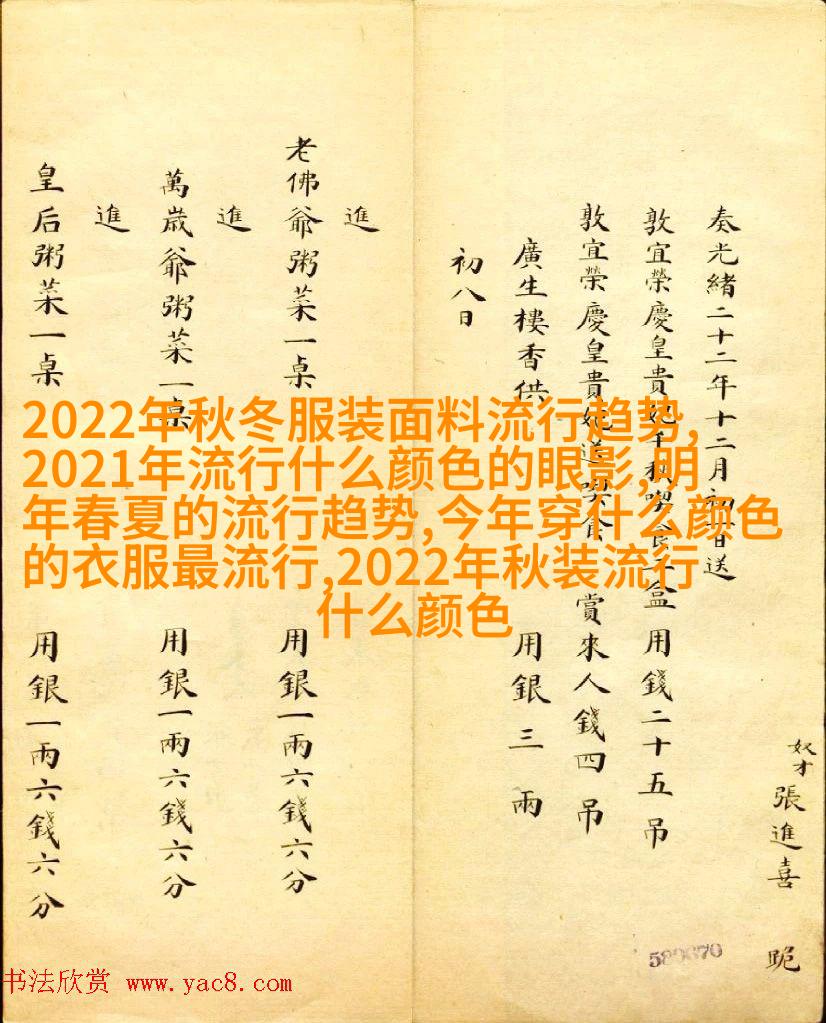 奴才張進喜 跪
奏光緒二十二年十二月初日送
敦宜榮慶皇貴妃千秋喫食盒 用錢二十五吊
敦宜榮慶皇貴妃送喫食 賞來人錢四吊
廣生樓香供 用銀三兩
初八日
進
老佛爺粥菜一桌 用銀一兩六錢六分
進
萬歲爺粥菜一桌 用銀一兩六錢六分
進
皇后粥菜一桌 用銀一兩六錢六分
2022年秋冬服装面料流行趋势,
2021年流行什么颜色的眼影,明
年春夏的流行趋势,今年穿什么颜色
的衣服最流行,2022年秋装流行
什么颜色
书法欣赏 www.yac8.com